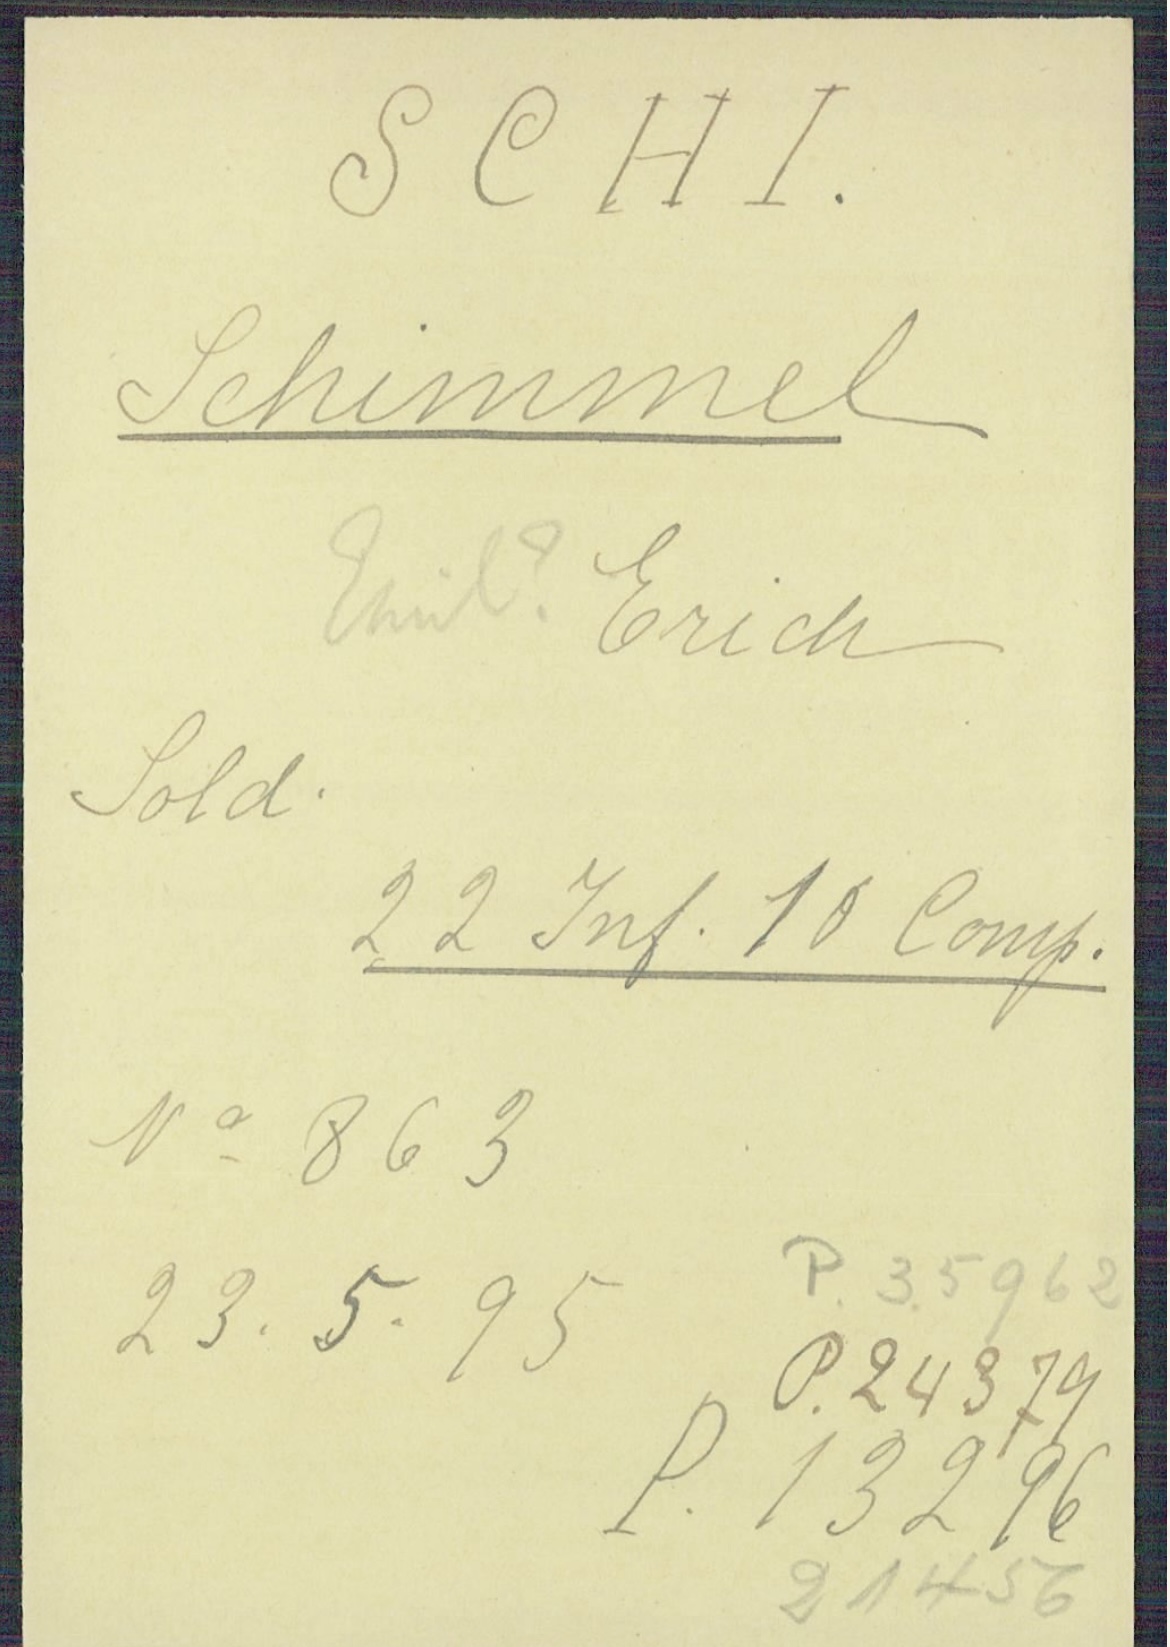 S C H I.
Schimmel
Emil? Erich
Sold.
22 Inf. 10 Comp.
Nº 863
23. 5. 95
P. 35962
P. 24379
P. 13296
21456